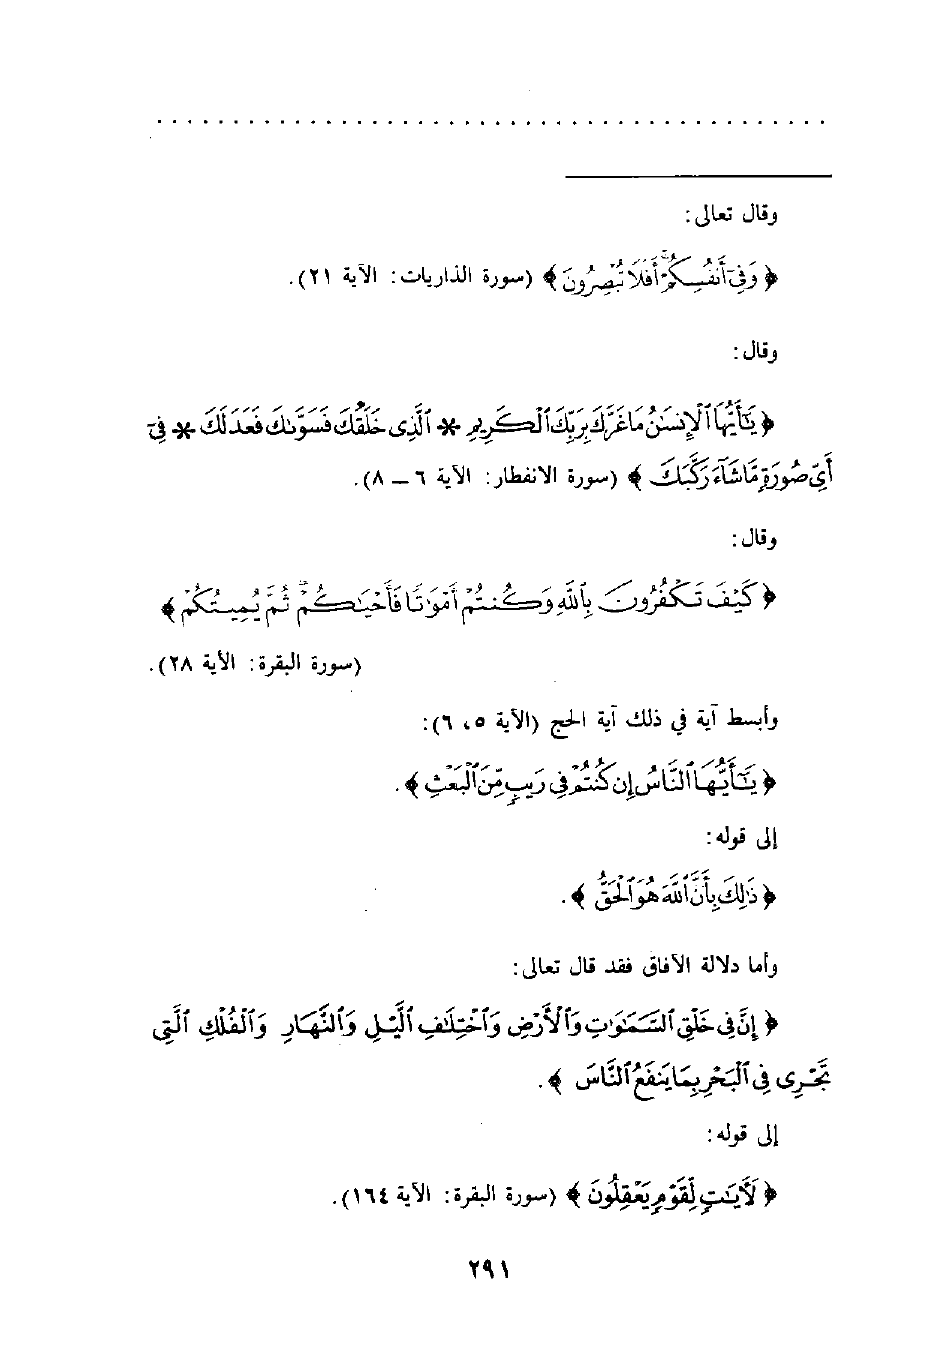 وقال تعالى:
﴿ وَفِىٓ أَنفُسِكُمْ ۚ أَفَلَا تُبْصِرُونَ ﴾ (سورة الذاريات: الآية ٢١).
وقال:
﴿ يَـٰٓأَيُّهَا ٱلْإِنسَـٰنُ مَا غَرَّكَ بِرَبِّكَ ٱلْكَرِيمِ * ٱلَّذِى خَلَقَكَ فَسَوَّىٰكَ فَعَدَلَكَ * فِىٓ
أَىِّ صُورَةٍ مَّا شَآءَ رَكَّبَكَ ﴾ (سورة الانفطار: الآية ٦ ــ ٨).
وقال:
﴿ كَيْفَ تَكْفُرُونَ بِٱللَّهِ وَكُنتُمْ أَمْوَٰتًا فَأَحْيَـٰكُمْ ۖ ثُمَّ يُمِيتُكُمْ ﴾
(سورة البقرة: الآية ٢٨).
وأبسط آية في ذلك آية الحج (الآية ٥، ٦):
﴿ يَـٰٓأَيُّهَا ٱلنَّاسُ إِن كُنتُمْ فِى رَيْبٍ مِّنَ ٱلْبَعْثِ ﴾.
إلى قوله:
﴿ ذَٰلِكَ بِأَنَّ ٱللَّهَ هُوَ ٱلْحَقُّ ﴾.
وأما دلالة الآفاق فقد قال تعالى:
﴿ إِنَّ فِى خَلْقِ ٱلسَّمَـٰوَٰتِ وَٱلْأَرْضِ وَٱخْتِلَـٰفِ ٱلَّيْلِ وَٱلنَّهَارِ وَٱلْفُلْكِ ٱلَّتِى
تَجْرِى فِى ٱلْبَحْرِ بِمَا يَنفَعُ ٱلنَّاسَ ﴾.
إلى قوله:
﴿ لَـَٔايَـٰتٍ لِّقَوْمٍ يَعْقِلُونَ ﴾ (سورة البقرة: الآية ١٦٤).
٢٩١